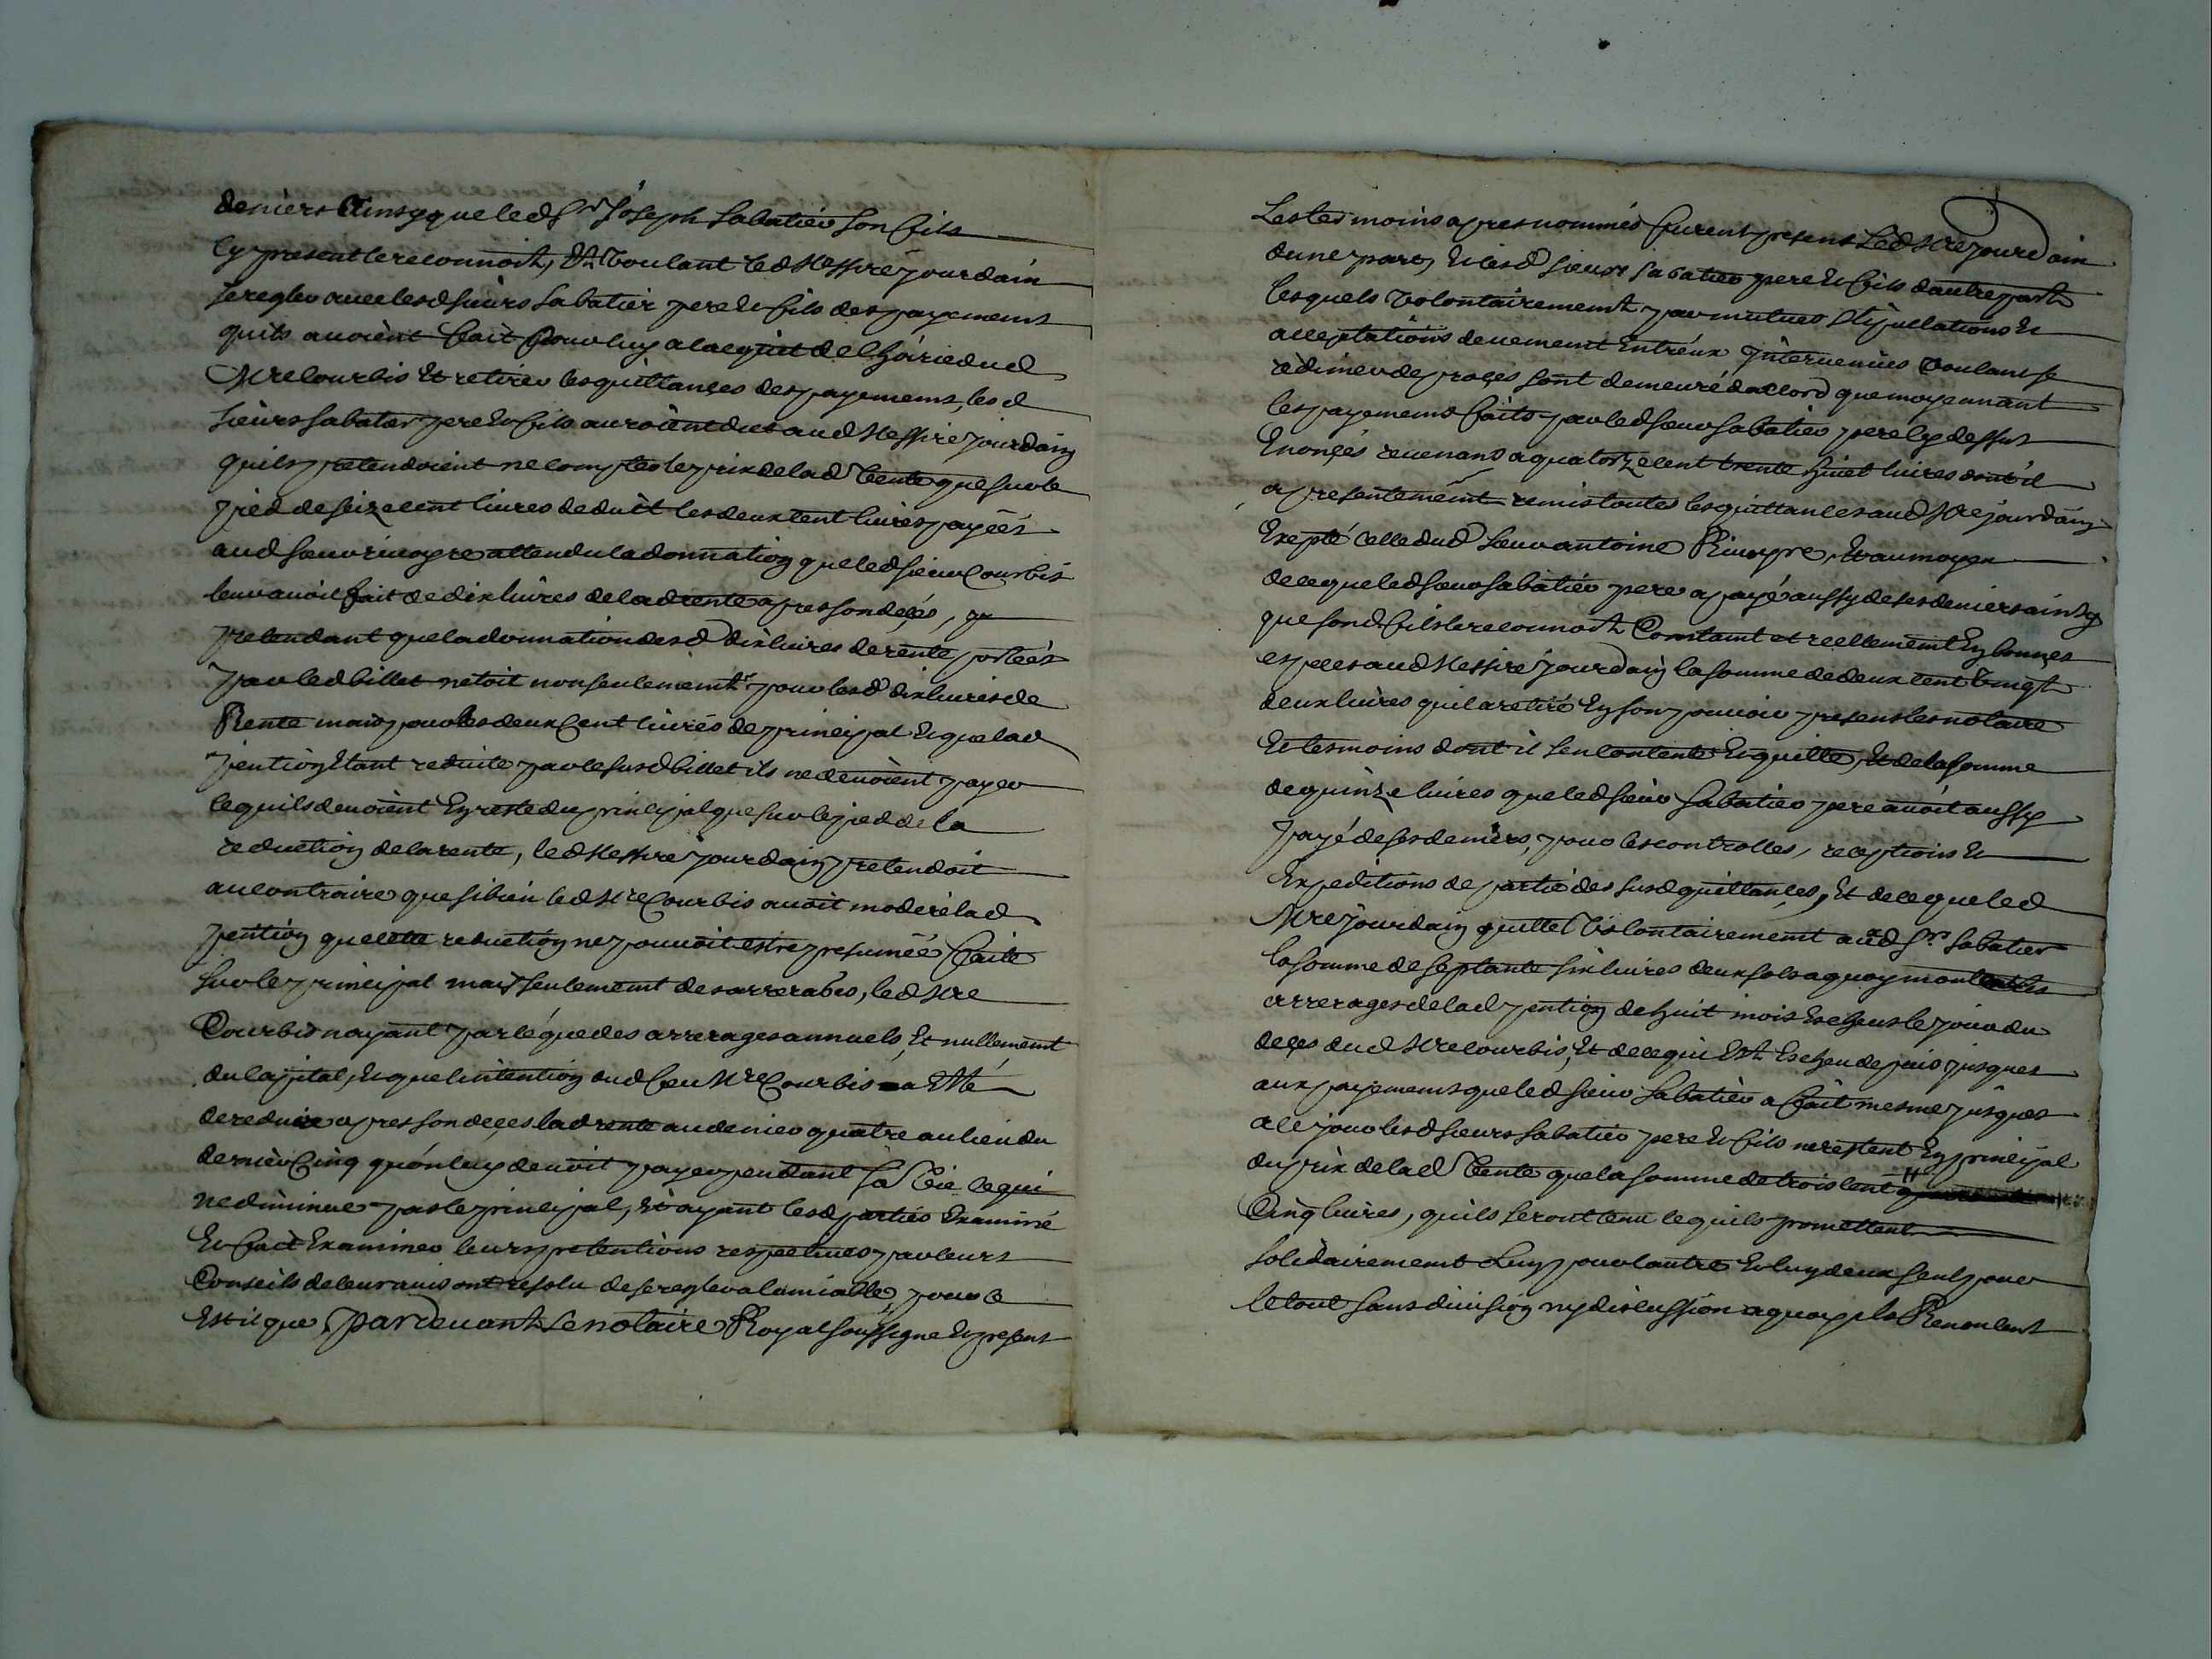 deniers Ainsy que led Sr Joseph Sabatier son fils
Cy present le reconnoit, Et Voulant led Messire Jourdain
se regler avec lesd sieurs Sabatier pere et fils des payemens
quils avoient fait pour luy a lacquit de lhoirie dud
Mre Courbis Et retirer les quittances des payemens, les d
sieurs Sabatier pere et fils auroient dit aud Messire Jourdain
quils pretendoient ne compter le prix de lad Vente que sur le
pied de seize cent livres deduit les deux cent livres payées
aud sieur rivoyre attendu la donnation que led sieur Courbis
leur avoit fait de dix livres de lad rente apres son deçés,
pretendant que la donnation desd dix livres de rente portées
par led billet netoit non seulement pour lesd dix livres de
Rente mais pour les deux Cent livrés de principal Et que lad
pention Etant reduite par le susd billet ils ne devoient payer
ce quils devoient En reste du principal que sur le pied de la
reduction de la rente, led Messire Jourdain pretendoit
au contraire que si bien led Mre Courbis avoit moderé lad
pention que cette reduction ne pouvoit estre presumée faite
sur le principal mais seulement des arrerages, led Mre
Courbis nayant parlé que des arrerages annuels, Et nullement
du Capital, Et que lintention dud feu Mre Courbis a Esté
de reduire apres son deçes lad rente au denier quatre au lieu du
denier Cinq quon luy devoit payer pendant sa Vie ce qui
ne diminue pas le principal, Et ayant lesd parties Examiné
Et fait Examiner leurs pretentions respectives par leurs
Conseils de leur avis ont resolu de se regler a lamiable, pour Ce
Est il que pardevant Le notaire Royal soussigne Et presens
Les tesmoins apres nommés furent presens Led Mre Jourdain
dune part, Et lesd sieurs Sabatier pere Et fils dautre part
lesquels Volontairement par mutues stipullations Et
acceptations deuement Entreux Intervenues Voulant se
redimer de proçes sont demeuré daccord que moyennant
les payemens faits par led sieur Sabatier pere Cy dessus
Enonçés revenans a quatorze cent trente huict livres dont il
a presentement remis toutes les quittances aud Mre Jourdain
Exepté Celle dud sieur antoine Rivoyre, Et au moyen
de ce que led sieur Sabatier pere a payé aussy de ses deniers ainsy
que sond fils le reconnoit Comptant et reellement En bonnes
especes aud Messire Jourdain la somme de deux cent Vingt
deux livres quil a retiré En son pouvoir presens les notaire
Et tesmoins dont il sen contente Et quitte, Et de la somme
de quinze livres que led sieur Sabatier pere avoit aussy
payé de ses deniers, pour les controlles, receptions Et
Expeditions de partie des susd quittances, Et de ce que led
Mre Jourdain quitte Volontairement aud Sr Sabatier
la somme de septante six livres deux sols a quoy montent les
arrerages de lad pention de huit mois Escheus le jour du
deçes dud Mre Courbis, Et de ce qui Est Escheu depuis jusques
aux payemens que led sieur Sabatier a fait mesme jusques
a Ce jour lesd sieurs Sabatier pere Et fils ne restent En principal
du prix de lad Vente que la somme de trois cent
Cinq livres, quils seront tenu Ce quils promettent
solidairement Lun pour lautre Et lun deux seul pour
le tout sans division ny discussion a quoy ils Renoncent